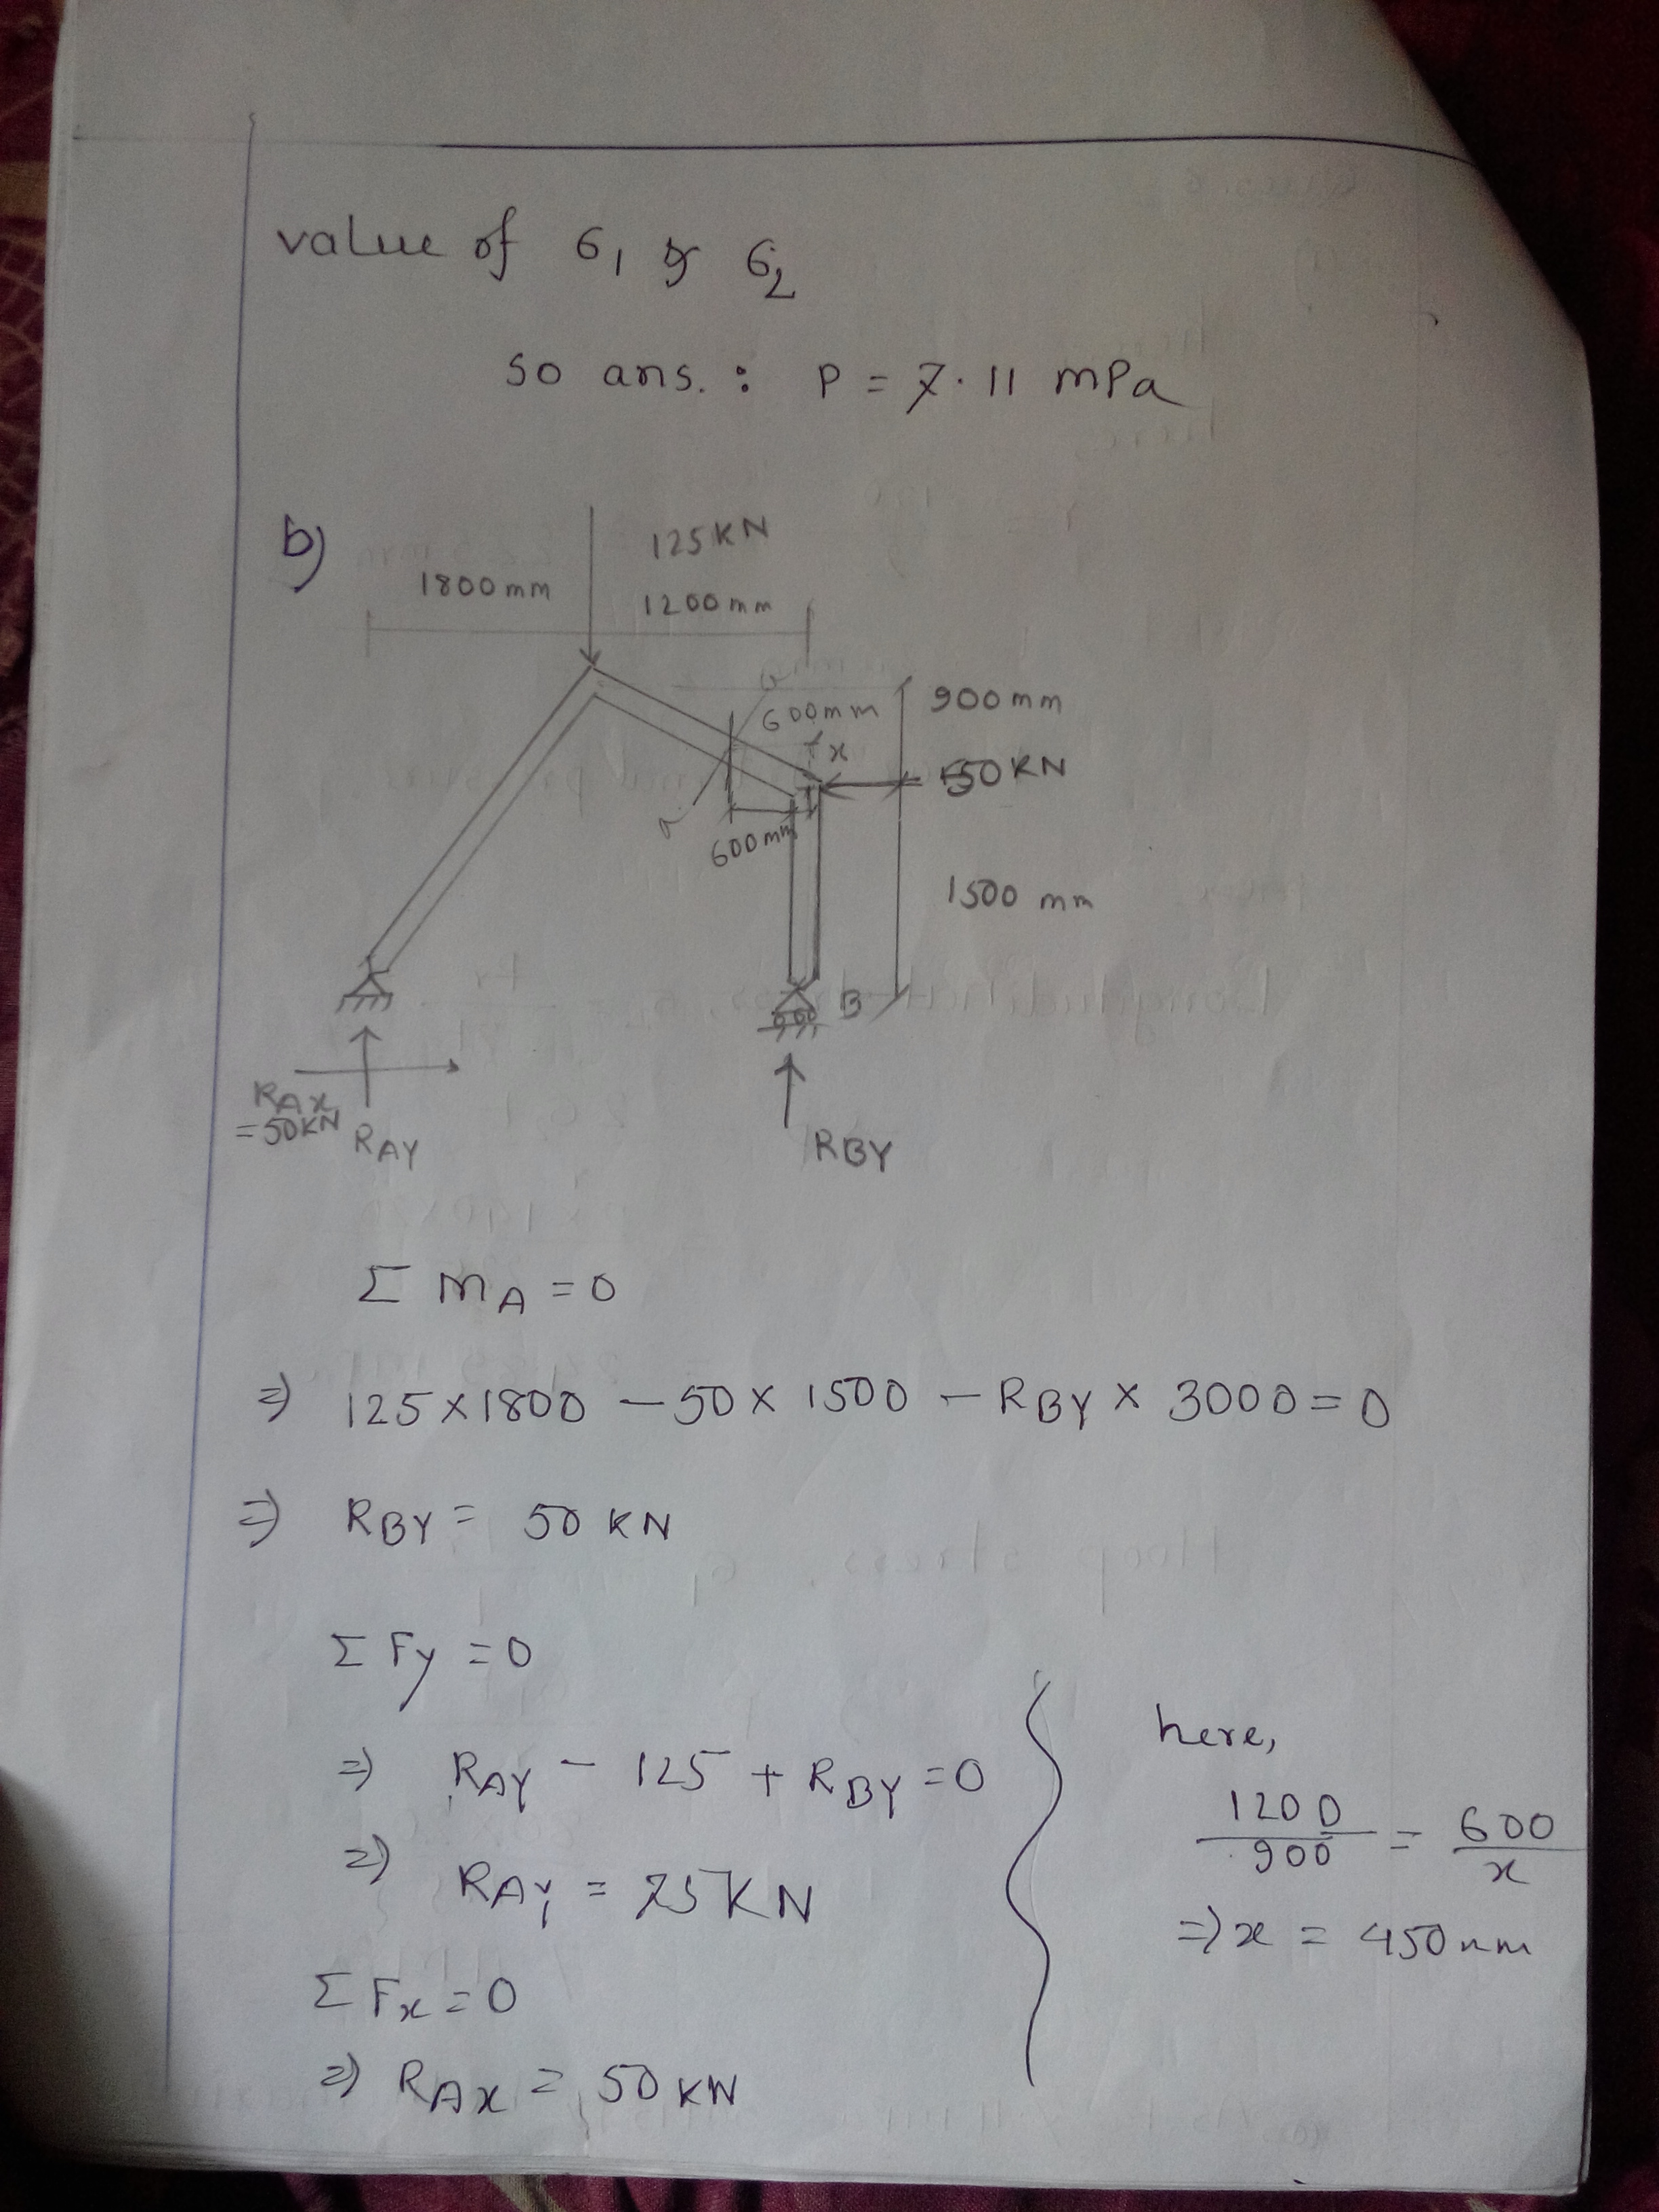 value of σ1 & σ2
so ans. : P = 7.11 mPa
b)
125KN
1800mm
1200mm
a
600mm
900mm
x
50KN
a
600mm
1500 mm
B
RAX
=50KN
RAY
RBY
Σ MA = 0
⇒ 125×1800 - 50 × 1500 - RBY × 3000 = 0
⇒ RBY = 50 KN
Σ Fy = 0
⇒ RAY - 125 + RBY = 0
⇒ RAY = 75KN
Σ Fx = 0
⇒ RAx = 50 KN
here,
1200/900 = 600/x
⇒ x = 450mm